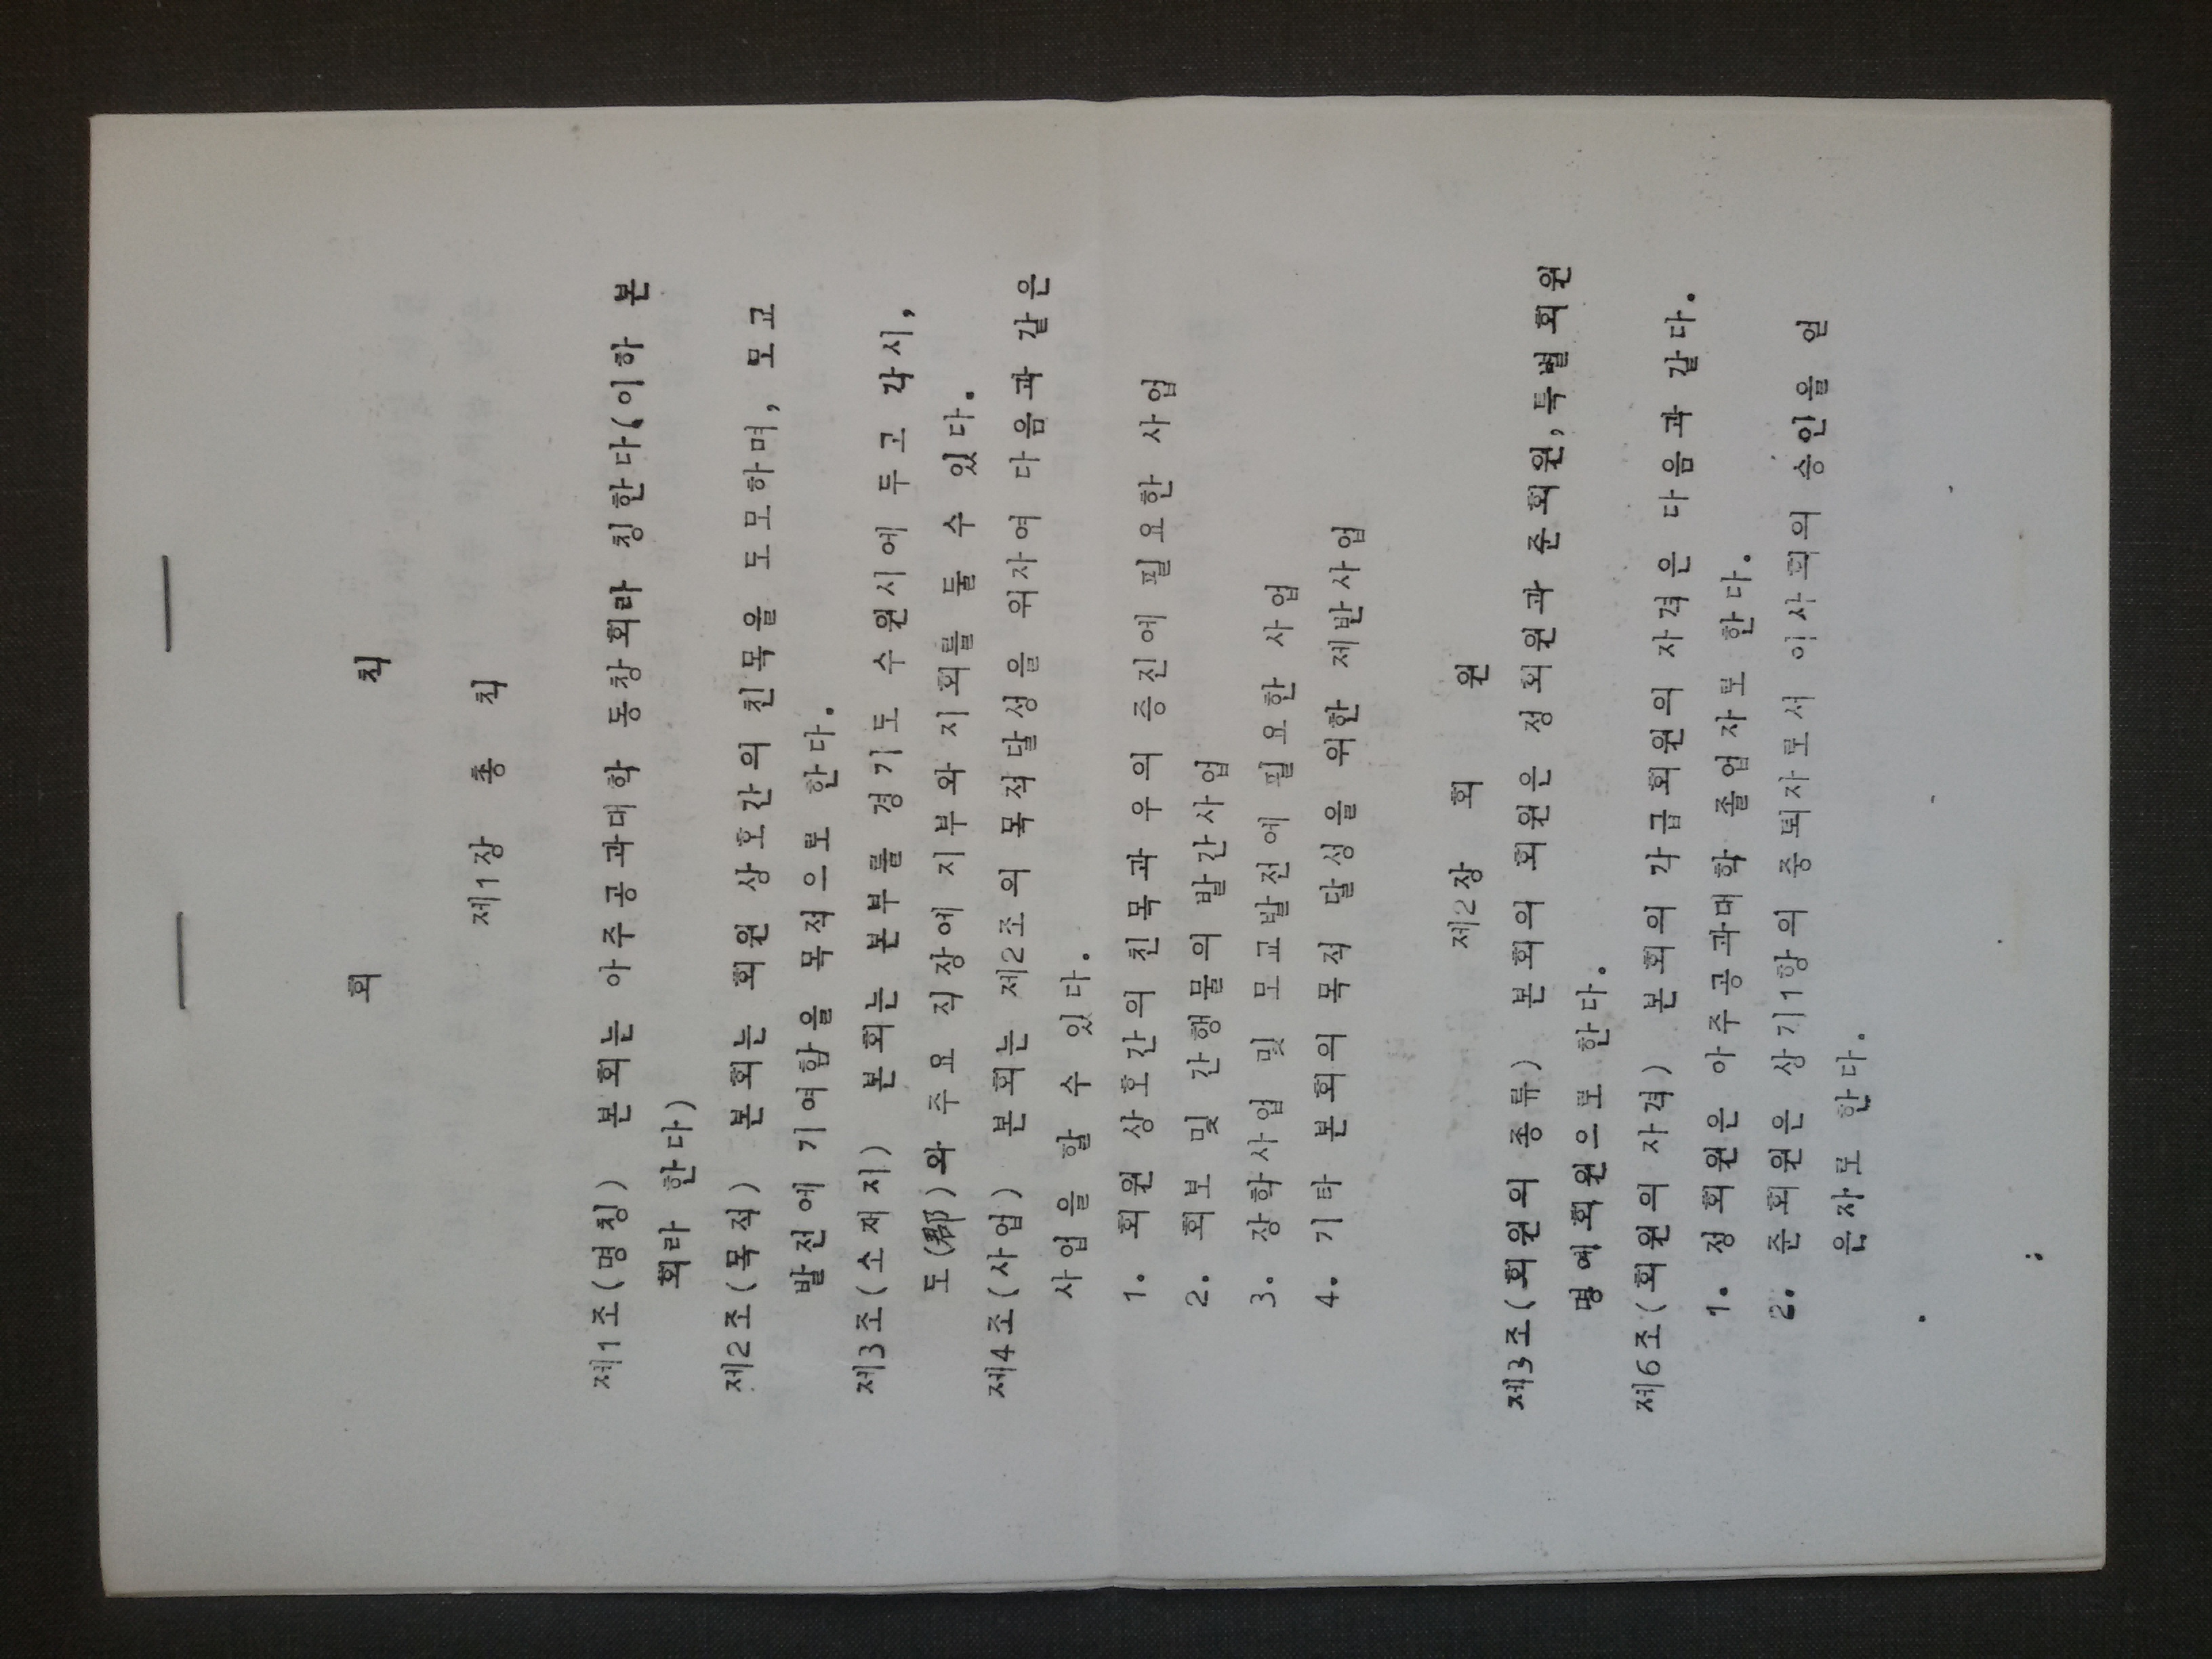 회 칙
제1장 총 칙
제1조(명칭) 본회는 아주공과대학 동창회라 칭한다(이하 본
회라 한다)
제2조(목적) 본회는 회원 상호간의 친목을 도모하며, 모교
발전에 기여함을 목적으로 한다.
제3조(소재지) 본회는 본부를 경기도 수원시에 두고 각시,
도(郡)와 주요 직장에 지부와 지회를 둘 수 있다.
제4조(사업) 본회는 제2조의 목적달성을 위자여 다음과 같은
사업을 할 수 있다.
1. 회원 상호간의 친목과 우의 증진에 필요한 사업
2. 회보 및 간행물의 발간사업
3. 장학사업 및 모교발전에 필요한 사업
4. 기타 본회의 목적 달성을 위한 제반사업
제2장 회 원
제3조(회원의 종류) 본회의 회원은 정회원과 준회원,특별회원
명예회원으로 한다.
제6조(회원의 자격) 본회의 각급회원의 자격은 다음과 같다.
1. 정회원은 아주공과대학 졸업자로 한다.
2. 준회원은 상기1항의 중퇴자로서 이사회의 승인을 얻
은자로 한다.